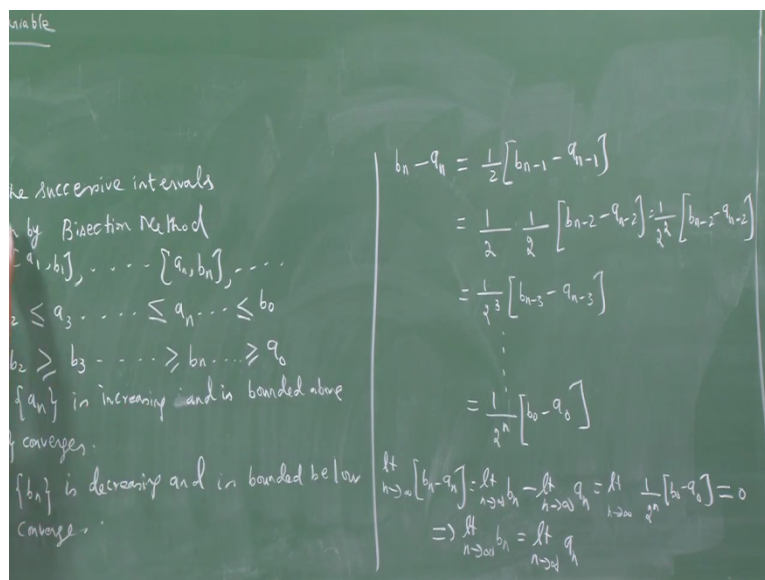 riable
he successive intervals
by Bisection Method
a₁, b₁], . . . . [aₙ, bₙ], . . . .
₂ ≤ a₃ . . . . . ≤ aₙ . . . ≤ b₀
b₂ ≥ b₃ . . . . . ≥ bₙ . . . . ≥ a₀
{aₙ} is increasing and is bounded above
} converges.
{bₙ} is decreasing and is bounded below
converges.
bₙ − aₙ = 1/2 [bₙ₋₁ − aₙ₋₁]
= 1/2 · 1/2 [bₙ₋₂ − aₙ₋₂] = 1/2² [bₙ₋₂ − aₙ₋₂]
= 1/2³ [bₙ₋₃ − aₙ₋₃]
⋮
= 1/2ⁿ [b₀ − a₀]
lt n→∞ [bₙ − aₙ] = lt n→∞ bₙ − lt n→∞ aₙ = lt n→∞ 1/2ⁿ [b₀ − a₀] = 0
⇒ lt n→∞ bₙ = lt n→∞ aₙ